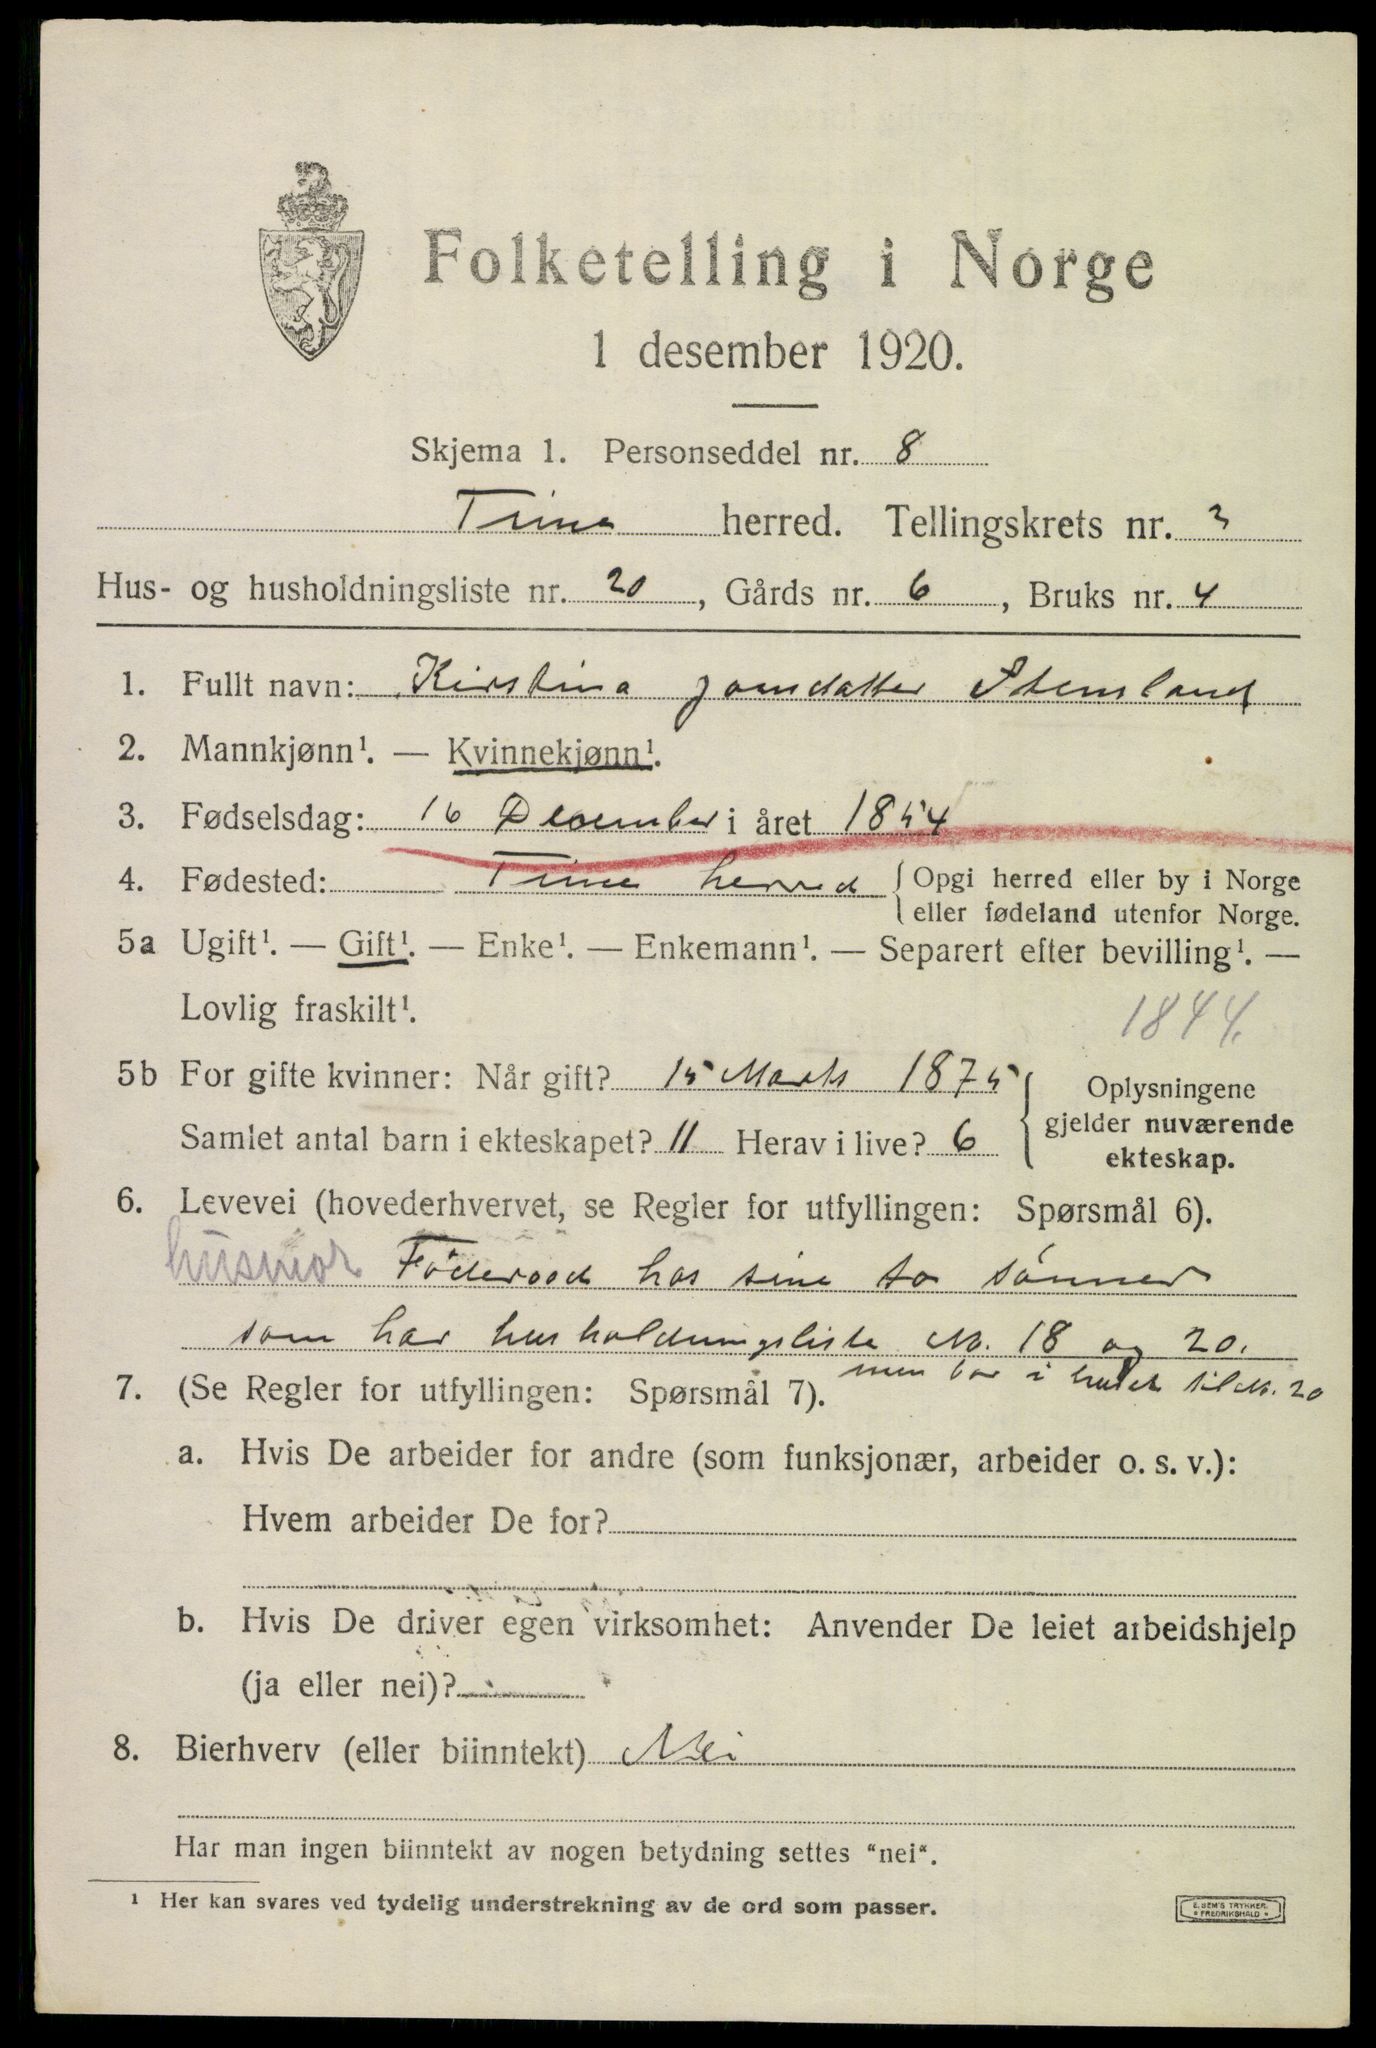 Folketelling i Norge
1 desember 1920.
Skjema 1. Personseddel nr. 8
Time herred. Tellingskrets nr. 3
Hus- og husholdningsliste nr. 20, Gårds nr. 6, Bruks nr. 4
1. Fullt navn: Kirstina Jonsdatter Stemsland
2. Mannkjønn¹. — Kvinnekjønn¹.
3. Fødselsdag: 16 December i året 1854
4. Fødested: Time herred { Opgi herred eller by i Norge
eller fødeland utenfor Norge.
5a Ugift¹. — Gift¹. — Enke¹. — Enkemann¹. — Separert efter bevilling¹. —
Lovlig fraskilt¹.
1844.
5b For gifte kvinner: Når gift? 15 Marts 1875 { Oplysningene
gjelder nuværende
Samlet antal barn i ekteskapet? 11 Herav i live? 6
ekteskap.
6. Levevei (hovederhvervet, se Regler for utfyllingen: Spørsmål 6).
husmor Föderaad hos sine to sönner
som har husholdningsliste No. 18 og 20.
men bor i huset til No. 20
7. (Se Regler for utfyllingen: Spørsmål 7).
a. Hvis De arbeider for andre (som funksjonær, arbeider o. s. v.):
Hvem arbeider De for?
b. Hvis De driver egen virksomhet: Anvender De leiet arbeidshjelp
(ja eller nei)?
8. Bierhverv (eller biinntekt) Nei
Har man ingen biinntekt av nogen betydning settes "nei".
¹ Her kan svares ved tydelig understrekning av de ord som passer.
E. SEM'S TRYKKER.
* FREDRIKSHALD *